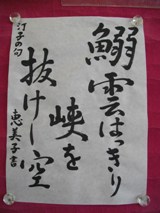 鰯雲はっきり
峡を
抜けし空
汀子の句
恵美子書